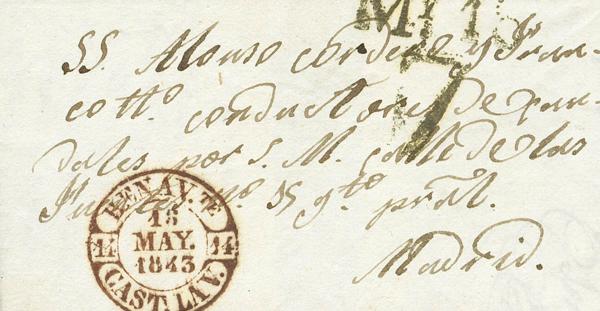 SS. Alonso Cordero y Fran-
co ttº. conductores de cau-
dales por S. M. calle de las
Fuentes nº
pral.
Madrid.
7
BENAV.TE
15
MAY.
1843
14 14
CAST. LA V.